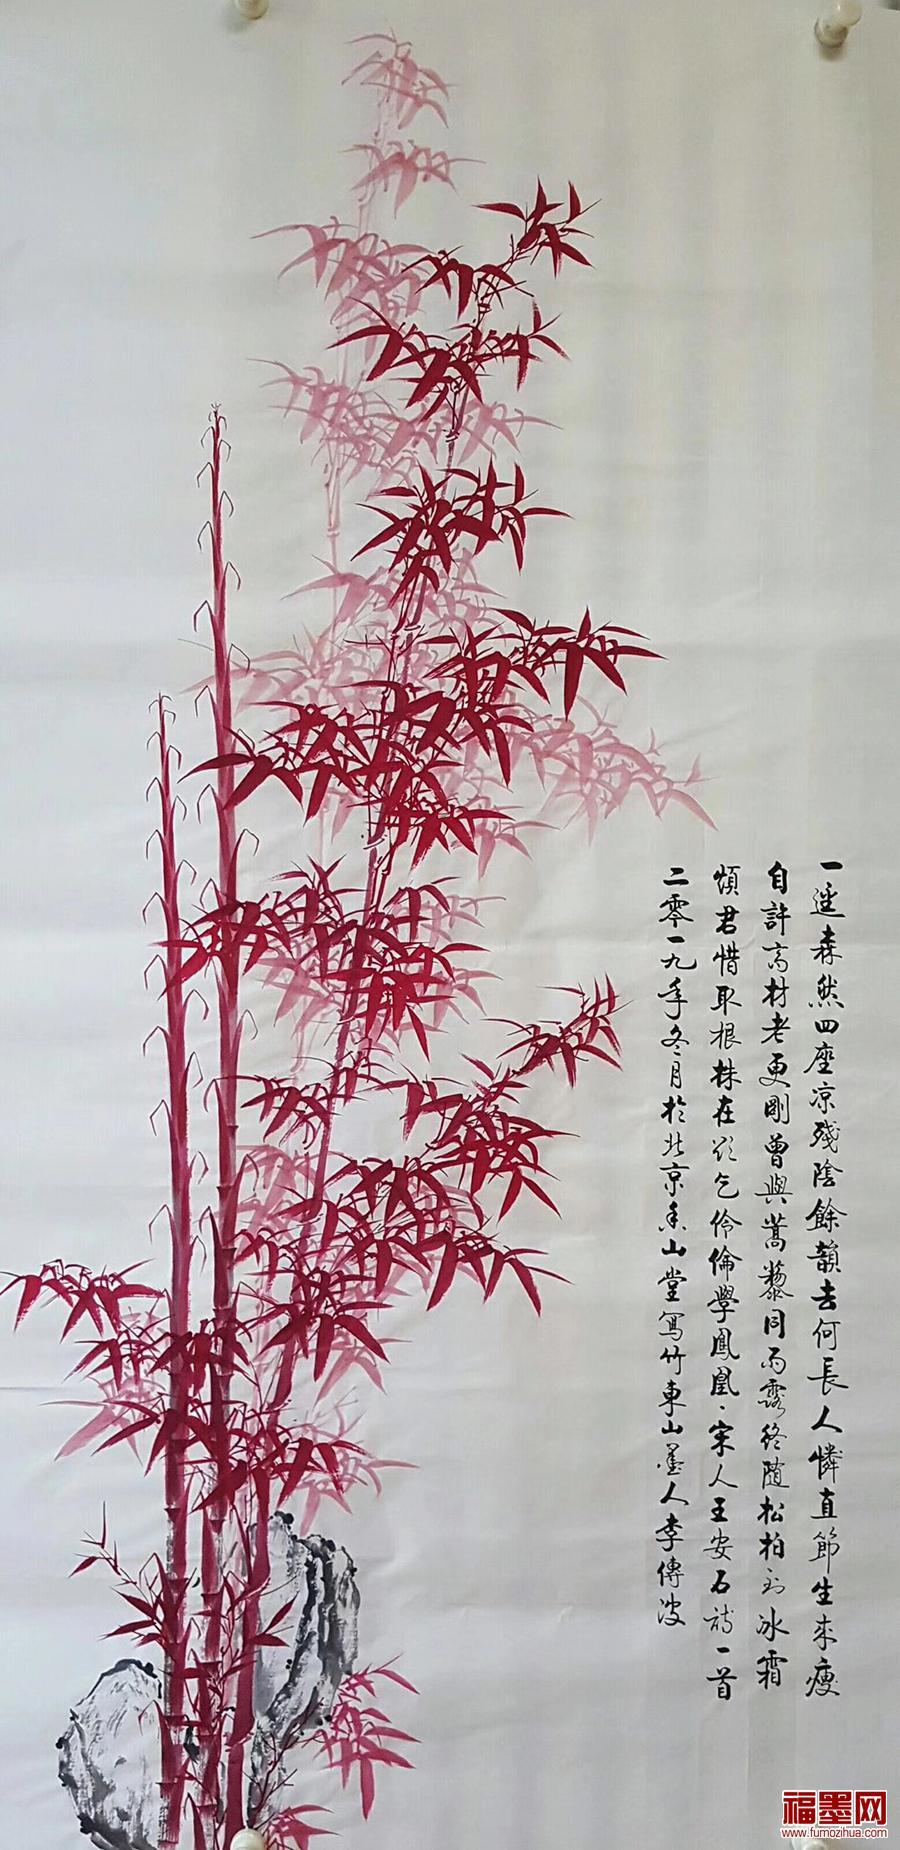 一迳森然四座凉殘陰餘韻去何長人憐直節生来瘦
自許高材老更剛曾與蒿藜同雨露終随松柏到冰霜
煩君惜取根株在欲乞伶倫學鳳凰、宋人王安石詩一首
二零一九年冬月於北京香山堂寫竹東山墨人李傳波
福墨网
www.fumozihua.com